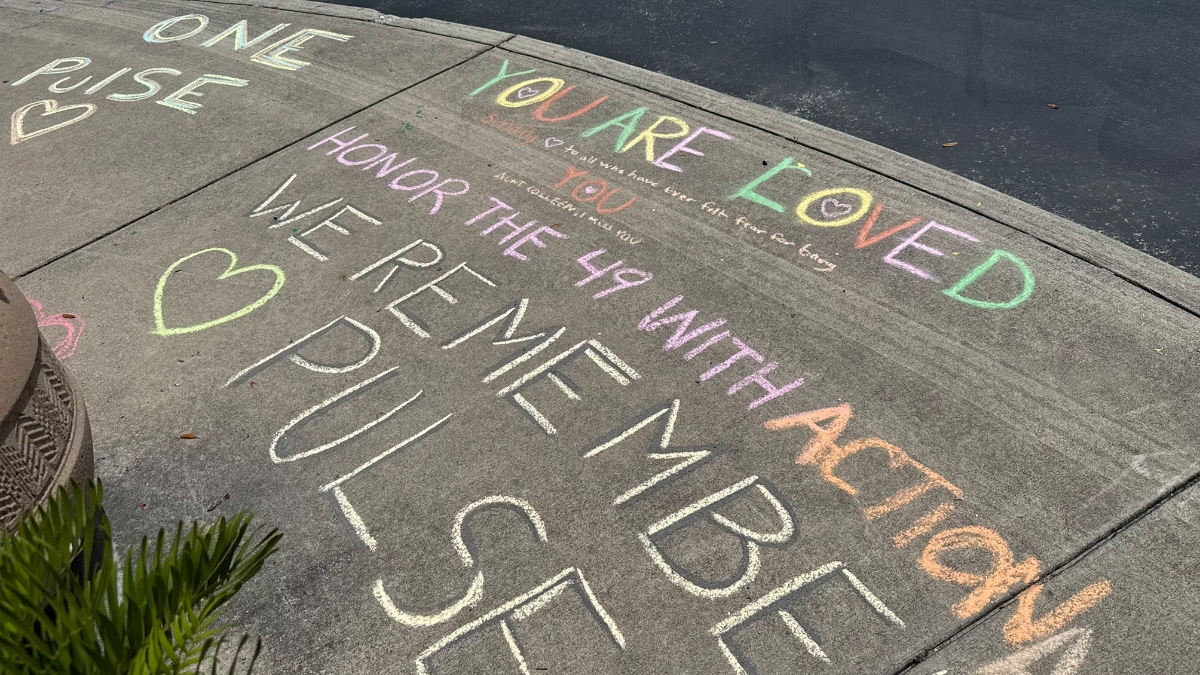 ONE
PULSE
YOU ARE LOVED
to all who have ever felt fear for being
YOU
AUNT COLLEEN, I MISS YOU
HONOR THE 49 WITH ACTION
WE REMEMBE
PULSE